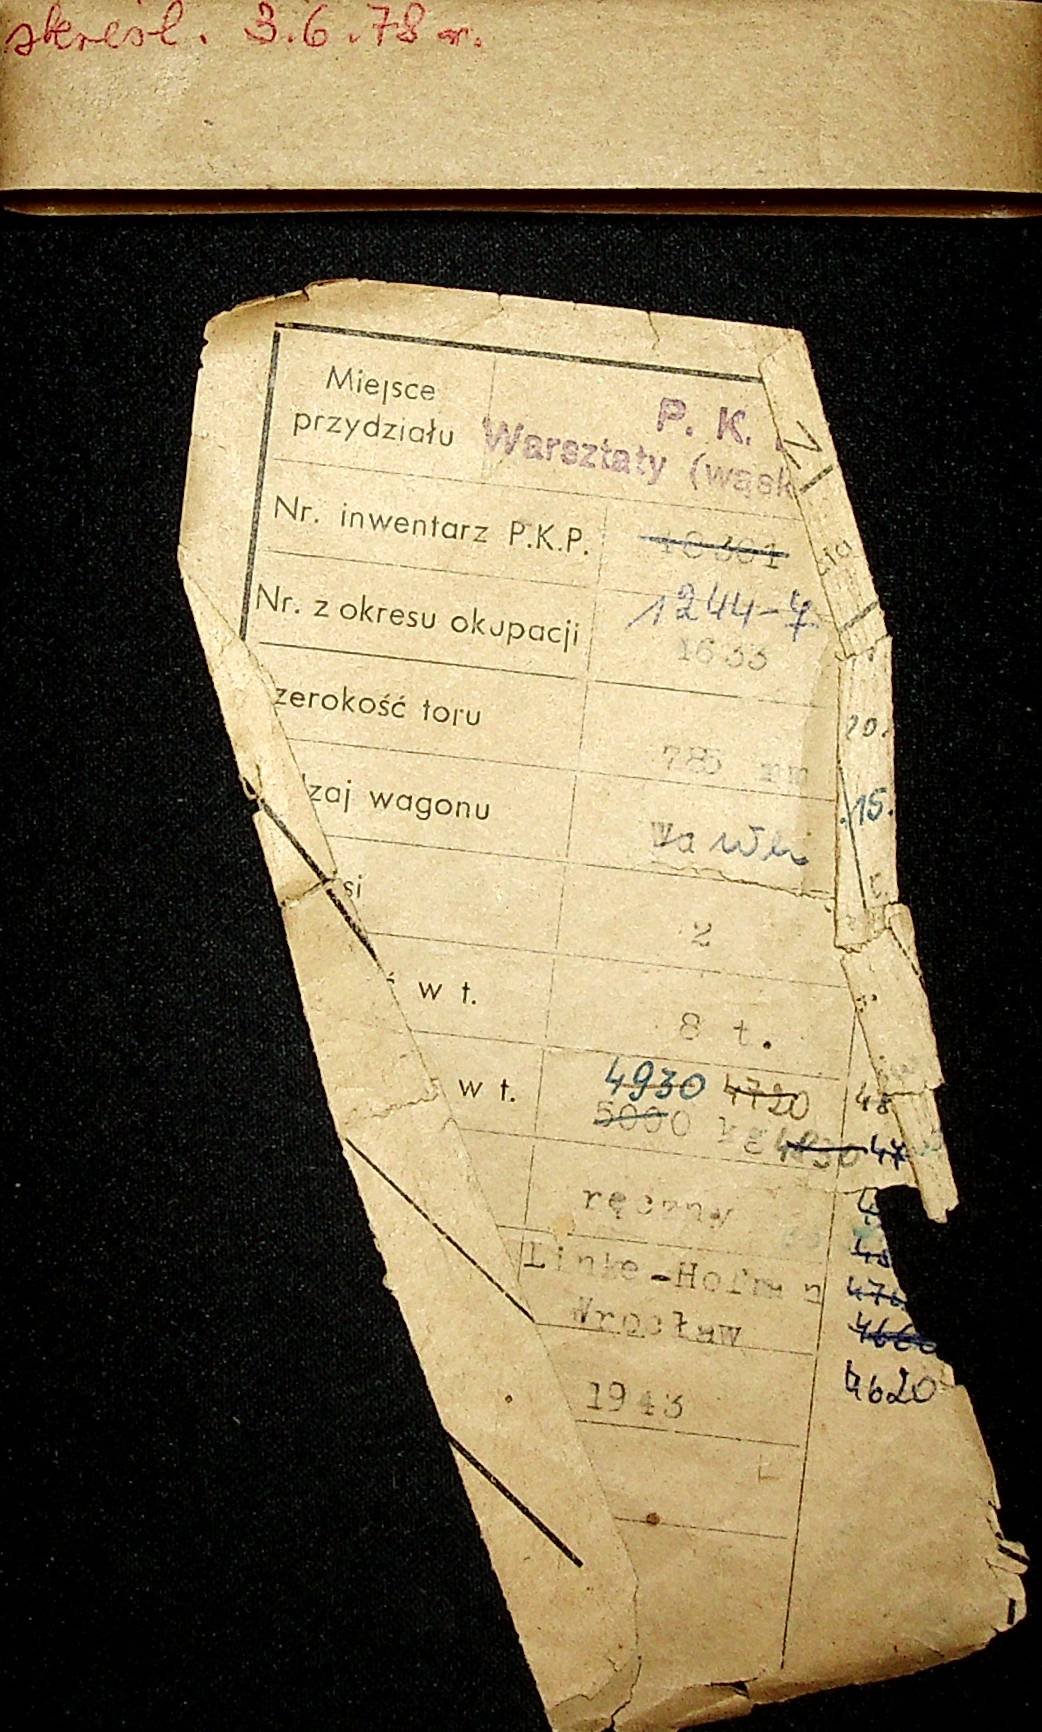 skreśl. 3.6.78 r.
Miejsce
przydziału
P. K.
Warsztaty (wąsk
Nr. inwentarz P.K.P.
1244-7
Nr. z okresu okupacji
1633
zerokość toru
785 mm
zaj wagonu
Wa Wh
si
2
w t.
8 t.
w t.
4930 4720
5000 kg 4830
ręczny
Linke-Hofm n
Wrocław
4620
1943
20.
15.